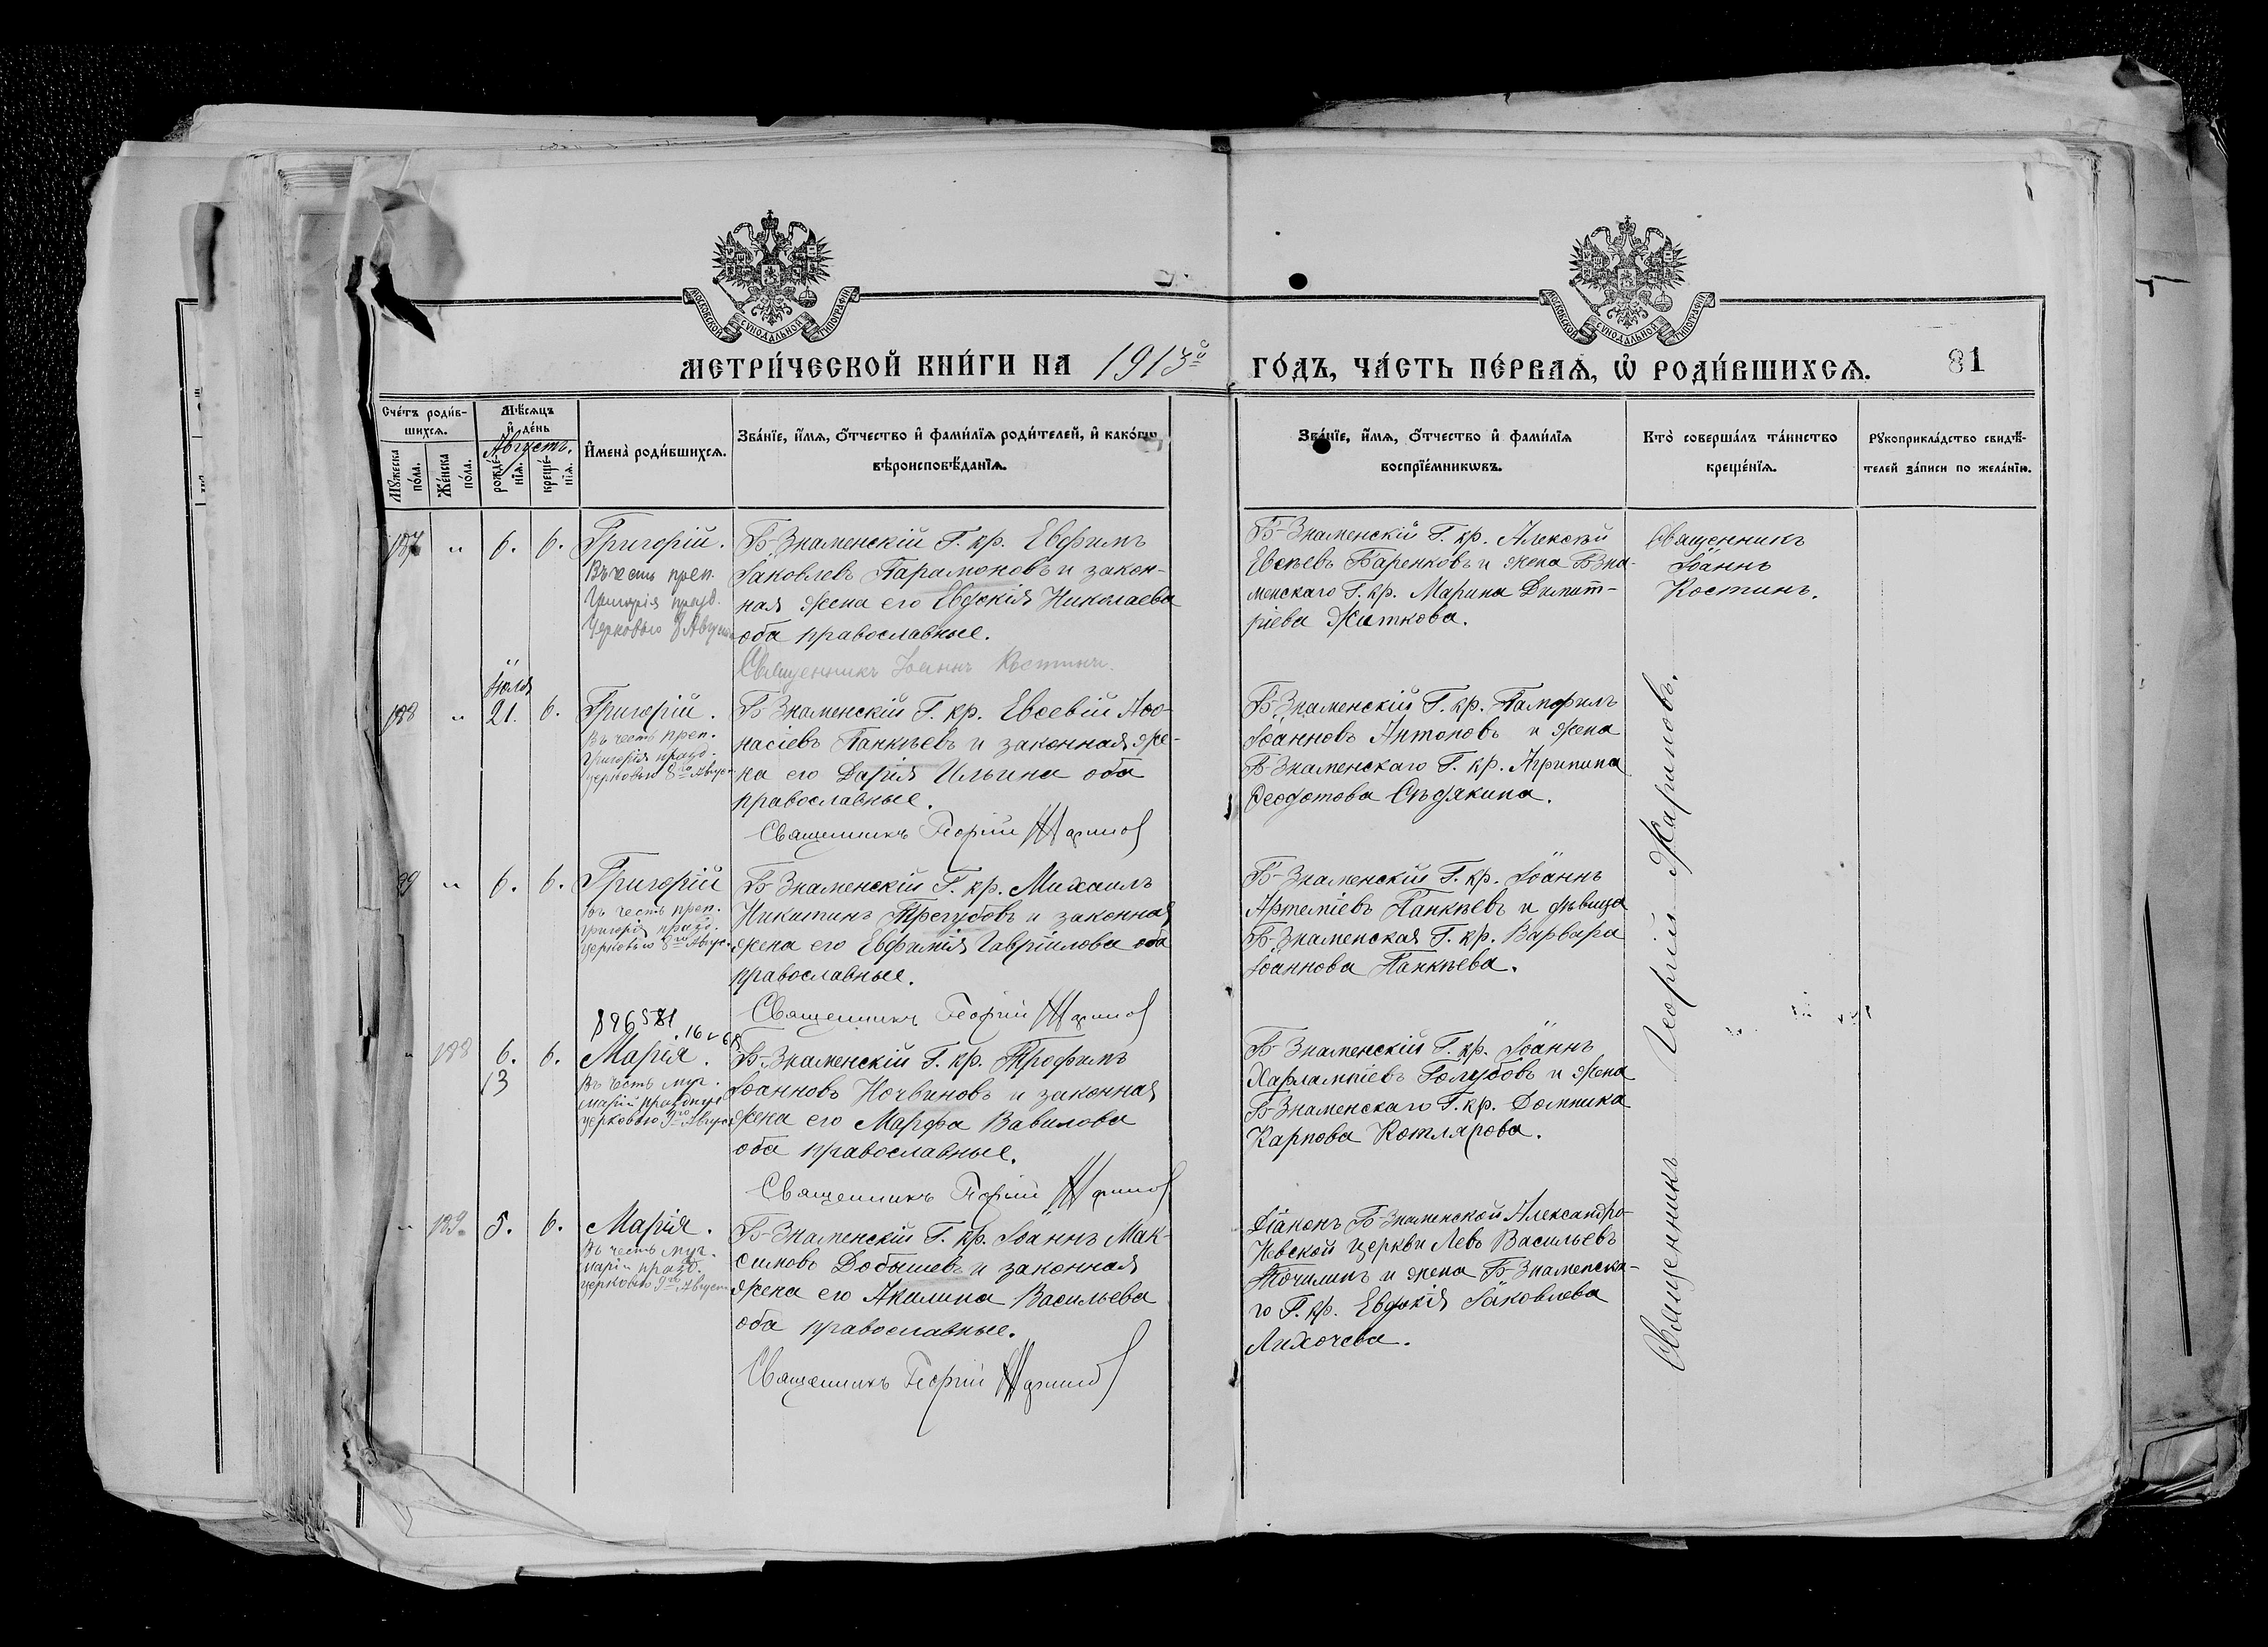 МОСКОВСКОЙ СѴНОДАЛЬНОЙ ТИПОГРАФІИ
МОСКОВСКОЙ СѴНОДАЛЬНОЙ ТИПОГРАФІИ
МЕТРИ́ЧЕСКОЙ КНИ́ГИ НА 1913й ГО́ДЪ, ЧА́СТЬ ПЕ́РВАѦ, Ѡ҆ РОДИ́ВШИХСѦ. 81
Сче́тъ роди́в-
шихсѧ.
Мꙋ́жеска по́ла.
Же́нска по́ла.
Мѣ́сѧцъ
и҆ де́нь
Августъ.
рожде́-
нїѧ.
креще́-
нїѧ.
И҆мена̀ роди́вшихсѧ.
Зва́нїе, и҆́мѧ, ѻ҆́тчество и҆ фами́лїѧ роди́телей, и҆ како́гѡ
вѣроисповѣ́данїѧ.
Зва́нїе, и҆́мѧ, ѻ҆́тчество и҆ фами́лїѧ
воспрїе́мникѡвъ.
Кто̀ соверша́лъ та́инство
креще́нїѧ.
Рꙋкоприкла́дство свидѣ́-
телей за́писи по жела́нїю.
187 " 6. 6. Григорій.
Въ честь преп.
Григорія празд.
Церковью 8 Августа
Б-Знаменскій Г. кр. Евфимъ
Іаковлевъ Парамоновъ и закон-
ная жена его Евдокія Николаева
оба православные.
Священникъ Іоаннъ Костинъ.
Б-Знаменскій Г. кр. Алексѣй
Евсѣевъ Баренковъ и жена Б-Зна-
менскаго Г. кр. Марина Димит-
ріева Житкова.
Священникъ
Іоаннъ
Костинъ.
188 " Іюля
21. 6. Григорій.
Въ честь преп.
Григорія празд.
церковью 8го Август
Б-Знаменскій Г. кр. Евсевій Аѳо-
насіевъ Панкѣевъ и законная же-
на его Дарія Ильина оба
православные.
Священникъ Георгій Жариновъ
Б-Знаменскій Г. кр. Памфилъ
Іоанновъ Антоновъ и жена
Б-Знаменскаго Г. кр. Агрипина
Ѳеодотова Сѣдякина.
89 " 6. 6. Григорій
въ честь преп.
Григорія празд.
церковью 8го Авгус.
Б-Знаменскій Г. кр. Михаилъ
Никитинъ Трегубовъ и законная
жена его Евфимія Гавріилова оба
православные.
Священникъ Георгій Жариновъ
Б-Знаменскій Г. кр. Іоаннъ
Артеміевъ Панкѣевъ и дѣвица
Б-Знаменская Г. кр. Варвара
Іоаннова Панкѣева.
896581
" 188 6. 6. Марія.
13
Въ честь муч.
Маріи празднуе
церковью 9го Авгус
Б-Знаменскій Г. кр. Трофимъ
Іоанновъ Ночвиновъ и законная
жена его Марфа Вавилова
оба православные.
Священникъ Георгій Жариновъ
Б-Знаменскій Г. кр. Іоаннъ
Харлампіевъ Голубовъ и жена
Б-Знаменскаго Г. кр. Домника
Карпова Котлярова.
" 189. 5. 6. Марія.
Въ честь муч.
Маріи празд.
церковью 9го Август
Б-Знаменскій Г. кр. Іоаннъ Мак-
симовъ Добышевъ и законная
жена его Акилина Васильева
оба православные.
Священникъ Георгій Жариновъ
Діаконъ Б-Знаменской Александро-
Невской церкви Левъ Васильевъ
Точилинъ и жена Б-Знаменска-
го Г. кр. Евдокія Іаковлева
Лихочева.
Священникъ Георгій Жариновъ.